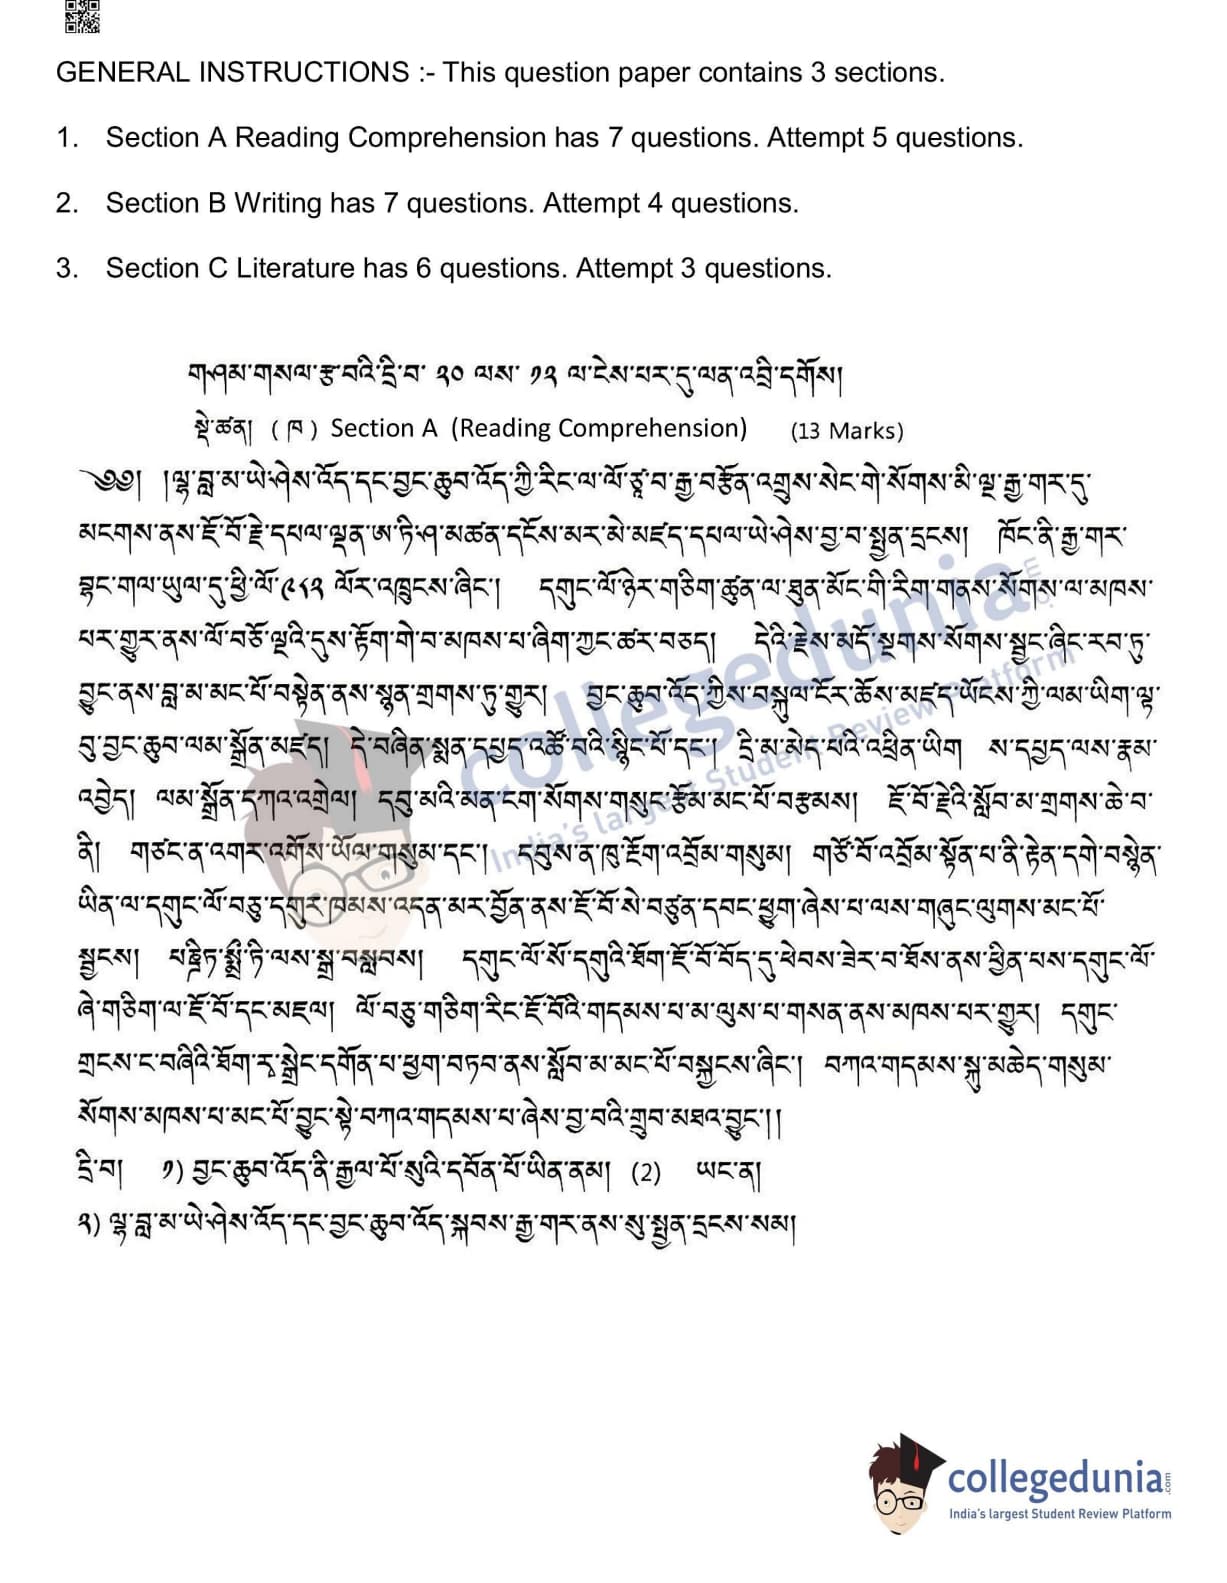 GENERAL INSTRUCTIONS :- This question paper contains 3 sections.
1. Section A Reading Comprehension has 7 questions. Attempt 5 questions.
2. Section B Writing has 7 questions. Attempt 4 questions.
3. Section C Literature has 6 questions. Attempt 3 questions.
གཤམ་གསལ་རྩ་བའི་དྲི་བ་ ༢༠ ལས་ ༡༢ ལ་ངེས་པར་དུ་ལན་འབྲི་དགོས།
སྡེ་ཚན། ( ཁ ) Section A (Reading Comprehension) (13 Marks)
༄༅། །ལྷ་བླ་མ་ཡེ་ཤེས་འོད་དང་བྱང་ཆུབ་འོད་ཀྱི་རིང་ལ་ལོ་ཙཱ་བ་རྒྱ་བརྩོན་འགྲུས་སེང་གེ་སོགས་མི་ལྔ་རྒྱ་གར་དུ་
མངགས་ནས་ཇོ་བོ་རྗེ་དཔལ་ལྡན་ཨ་ཏི་ཤ་མཚན་དངོས་མར་མེ་མཛད་དཔལ་ཡེ་ཤེས་བྱ་བ་སྤྱན་དྲངས། ཁོང་ནི་རྒྱ་གར་
བྷང་གལ་ཡུལ་དུ་ཕྱི་ལོ་༩༨༢ ལོར་འཁྲུངས་ཞིང་། དགུང་ལོ་ཉེར་གཅིག་ཚུན་ལ་ཐུན་མོང་གི་རིག་གནས་སོགས་ལ་མཁས་
པར་གྱུར་ནས་ལོ་བཅོ་ལྔའི་དུས་རྟོག་གེ་བ་མཁས་པ་ཞིག་ཀྱང་ཚར་བཅད། དེའི་རྗེས་མདོ་སྔགས་སོགས་སྦྱང་ཞིང་རབ་ཏུ་
བྱུང་ནས་བླ་མ་མང་པོ་བསྟེན་ནས་སྙན་གྲགས་ཏུ་གྱུར། བྱང་ཆུབ་འོད་ཀྱིས་བསྐུལ་ངོར་ཆོས་མཛད་ཡོངས་ཀྱི་ལམ་ཡིག་ལྟ་
བུ་བྱང་ཆུབ་ལམ་སྒྲོན་མཛད། དེ་བཞིན་སྨན་དཔྱད་འཚོ་བའི་སྙིང་པོ་དང་། དྲི་མ་མེད་པའི་འཕྲིན་ཡིག ས་དཔྱད་ལས་རྣམ་
འབྱེད། ལམ་སྒྲོན་དཀའ་འགྲེལ། དབུ་མའི་མན་ངག་སོགས་གསུང་རྩོམ་མང་པོ་བརྩམས། ཇོ་བོ་རྗེའི་སློབ་མ་གྲགས་ཆེ་བ་
ནི། གཙང་ན་འགར་འགོས་ཡོལ་གསུམ་དང་། དབུས་ན་ཁུ་རྔོག་འབྲོམ་གསུམ། གཙོ་བོ་འབྲོམ་སྟོན་པ་ནི་རྟེན་དགེ་བསྙེན་
ཡིན་ལ་དགུང་ལོ་བཅུ་དགུར་ཁམས་འདན་མར་བྱོན་ནས་ཇོ་བོ་སེ་བཙུན་དབང་ཕྱུག་ཞེས་པ་ལས་གཞུང་ལུགས་མང་པོ་
སྦྱངས། པཎྜི་ཏ་སྨྲྀ་ཏི་ལས་སྒྲ་བསླབས། དགུང་ལོ་སོ་དགུའི་ཐོག་ཇོ་བོ་བོད་དུ་ཕེབས་ཟེར་བ་ཐོས་ནས་ཕྱིན་པས་དགུང་ལོ་
ཞེ་གཅིག་ལ་ཇོ་བོ་དང་མཇལ། ལོ་བཅུ་གཅིག་རིང་ཇོ་བོའི་གདམས་པ་མ་ལུས་པ་གསན་ནས་མཁས་པར་གྱུར། དགུང་
གྲངས་ང་བཞིའི་ཐོག་རྭ་སྒྲེང་དགོན་པ་ཕྱག་བཏབ་ནས་སློབ་མ་མང་པོ་བསྐྱངས་ཞིང་། བཀའ་གདམས་སྐུ་མཆེད་གསུམ་
སོགས་མཁས་པ་མང་པོ་བྱུང་སྟེ་བཀའ་གདམས་པ་ཞེས་བྱ་བའི་གྲུབ་མཐའ་བྱུང་།།
དྲི་བ། ༡) བྱང་ཆུབ་འོད་ནི་རྒྱལ་པོ་སུའི་དབོན་པོ་ཡིན་ནམ། (2) ཡང་ན།
༢) ལྷ་བླ་མ་ཡེ་ཤེས་འོད་དང་བྱང་ཆུབ་འོད་སྐབས་རྒྱ་གར་ནས་སུ་སྤྱན་དྲངས་སམ།
collegedunia.com
India's largest Student Review Platform
collegedunia.com
India's largest Student Review Platform